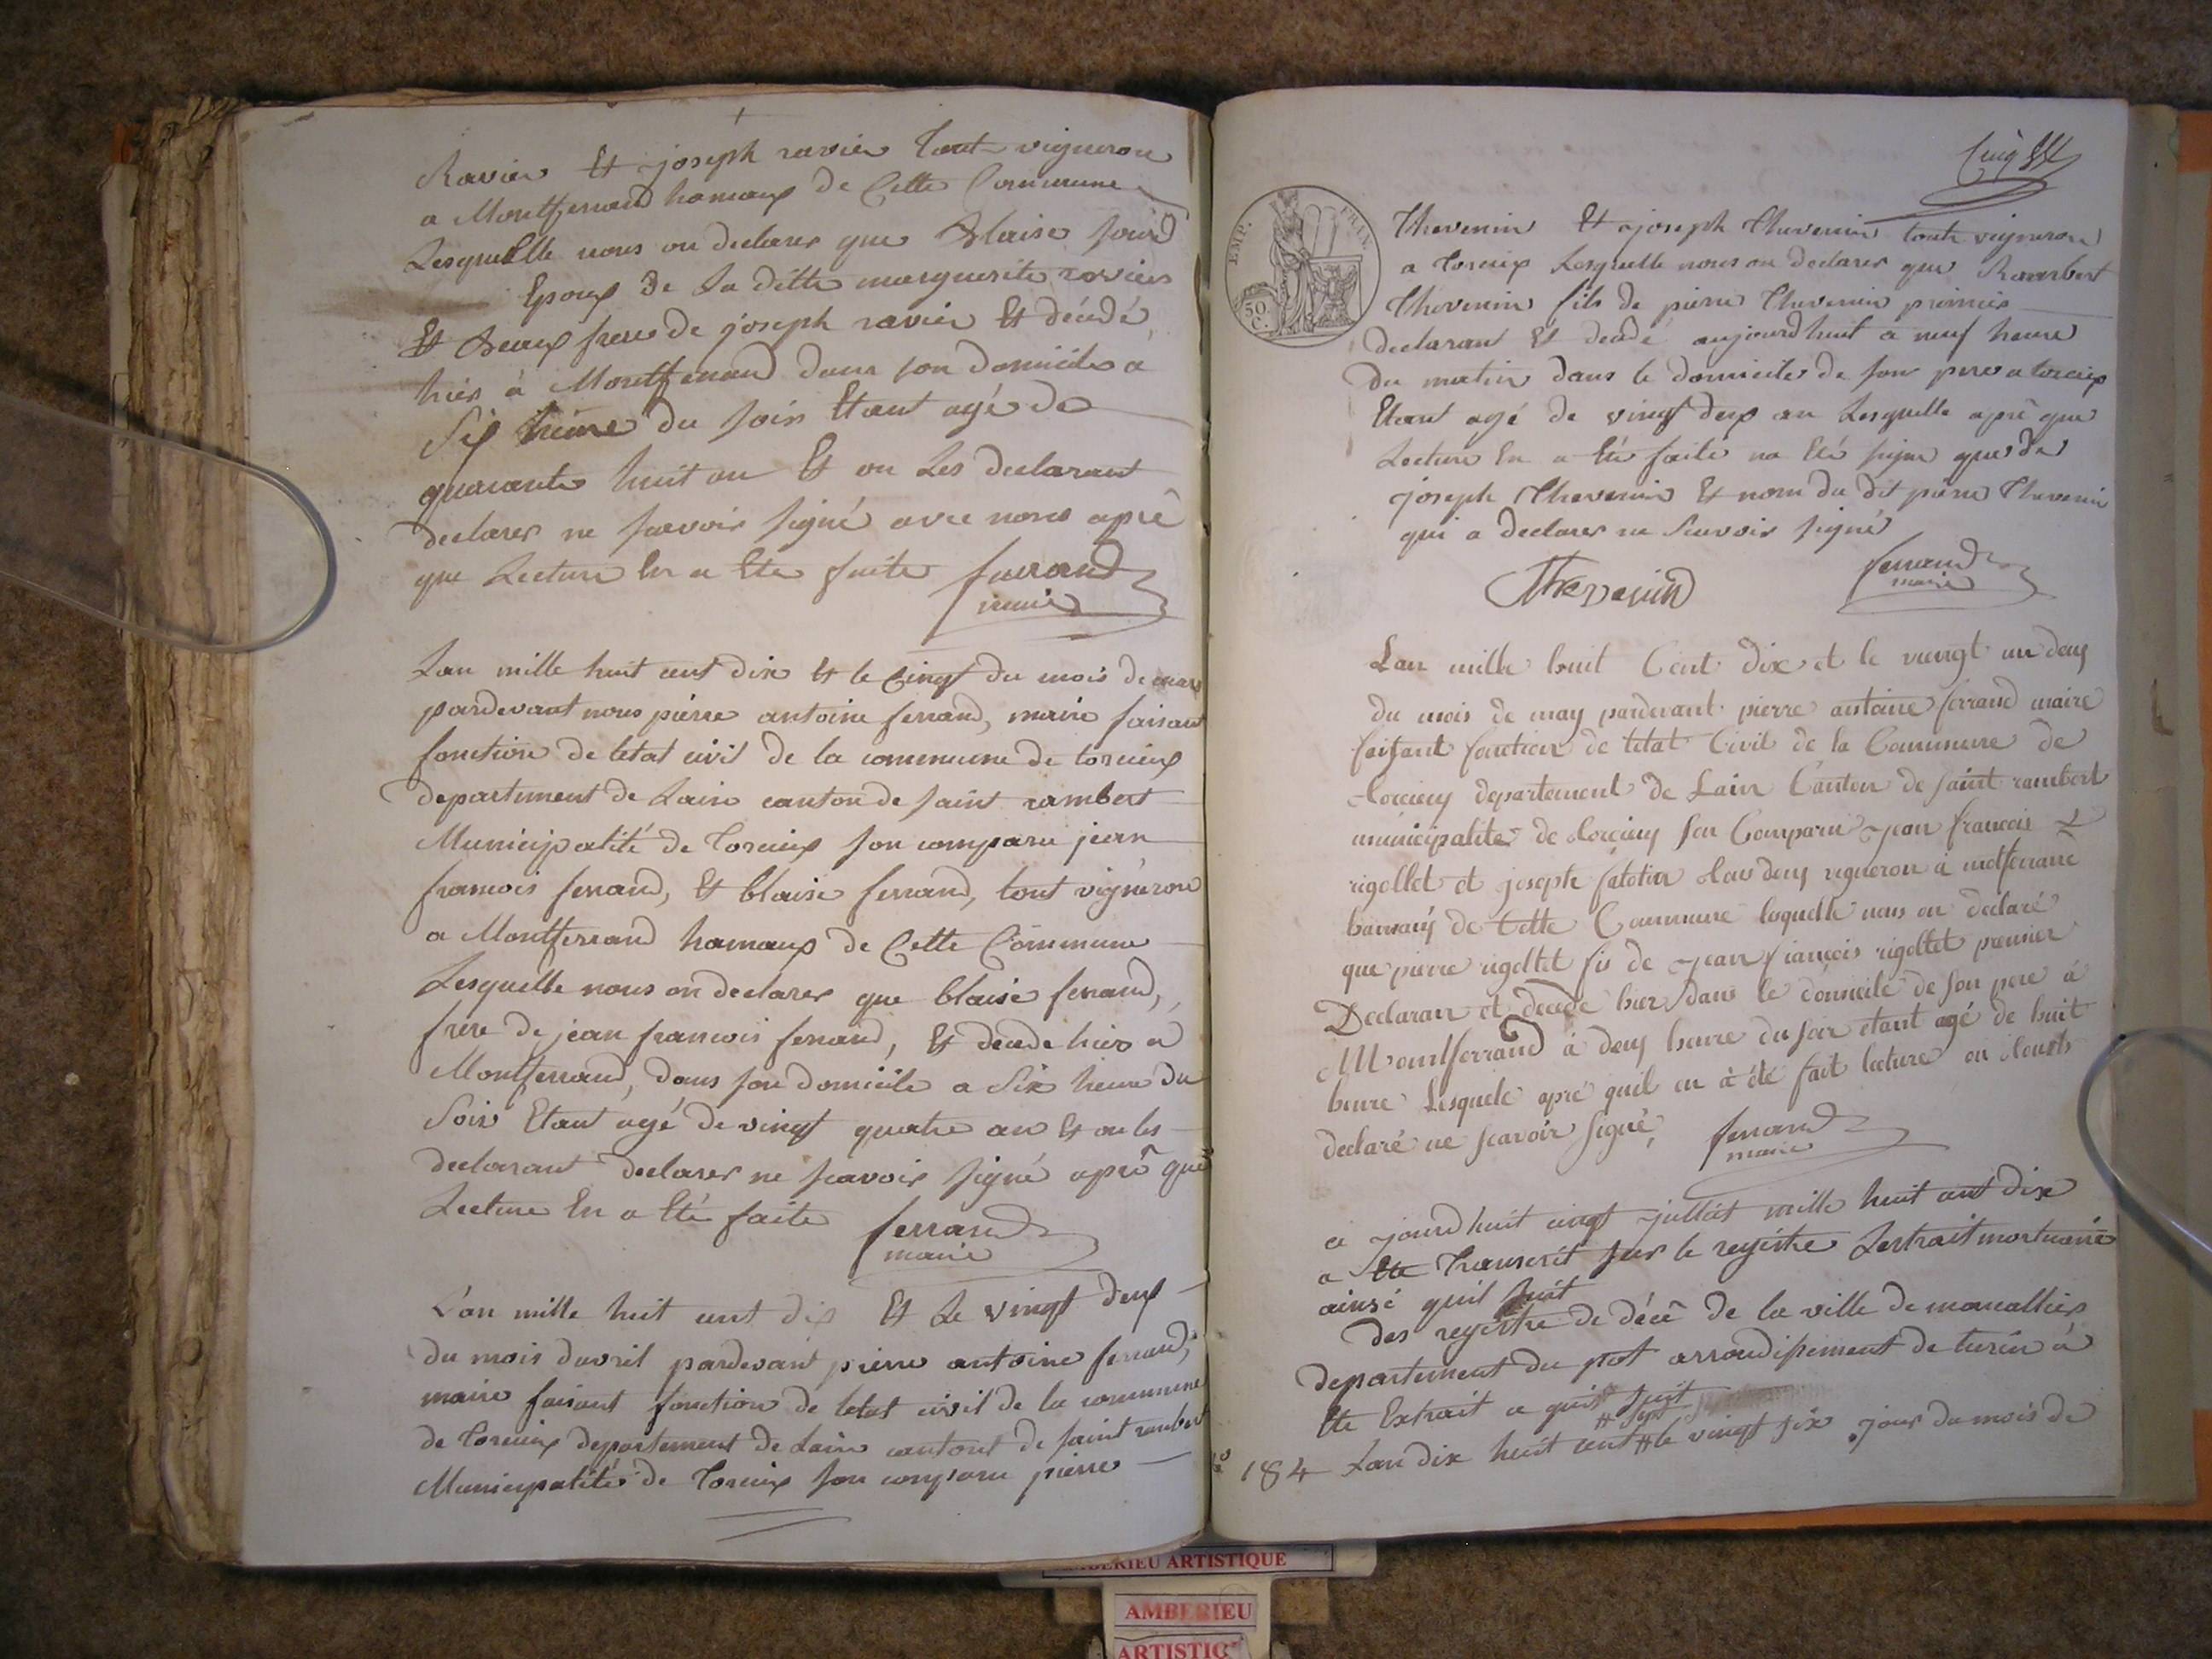 Ravier Et joseph ravier tout vigneron
a Montferrand hamaux de Cette Commune
Lesquelle nous on declarer que Blaise
Epoux de La ditte marguerite ravier
Et Beaux frere de joseph ravier Et décédé
hier à Montferrand dans son domicile a
Six heure du soir Etant agé de
quarante huit an Et on Les declarant
declarer ne scavoir signé avec nous aprê
que Lecture En a Ete faite ferrand
maire
Lan mille huit cent dix Et le cinq du mois de mars
pardevant nous pierre antoine ferrand, maire faisant
fonction de letat civil de la commune de torcieux
departement de Lain canton de saint rambert
Municipalité de Torcieux son comparu jean
francois ferrand, Et blaise ferrand, tout vigneron
a Montferrand hamaux de Cette Commune
Lesquelle nous on declarer que blaise ferrand,
frere de jean francois ferrand, Et decede hier a
Montferrand, dans son domicile a Six heure du
Soir Etant agé de vingt quatre an Et on les
declarant declarer ne scavoir signé aprê que
Lecture En a Eté faite ferrand
maire
L'an mille huit cent dix Et Le vingt deux
du mois davril pardevant pierre antoine ferrand,
maire faisant fonction de letat civil de la commune
de Torcieux departement de Lain cantont de saint rambert
Municipalité de Torcieux son comparu pierre
EMP. FRAN.
50
C.
Thevenin Et joseph Thevenin tout vigneron
a Torcieux Lesquelle nous on déclarer que Rambert
Thevenin fils de pierre Thevenin premier
declarant Et decedé aujourdhuit a neuf heure
Du matin dans le domicile de son pere a torcieux
Etant agé de vingt deux an Lesquelle aprê que
Lecture En a Eté faite na Eté signe que de
joseph Thevenin Et nom du dit pierre Thevenin
qui a declarer ne Scavoir signé
Thevenin ferrand
maire
Lan mille huit Cent dix et le vuingt un deux
du mois de may pardevant pierre antoine ferrand maire
faisant fonction de létat Civil de la Commune de
torcieux departement de Lain Canton de saint rambert
municipalité de torcieux son Comparu jean francois
rigollet et joseph tous deux vigneron à
de Cette Commune lequelle nous on declaré
que pierre rigollet fis de jean francois rigollet premier
Declaran et decedé hier dans le domicile de son pere à
Montferrand à deux heure du soir etant agé de huit
heure Lesquele apré quil en à été fait lecture on
declaré ne scavoir signé, ferrand
maire
a jourdhuit cinqt julliet mille huit cent dix
a Ete Transcrit sur le registre Lextrait mortuaire
ainsi quil suit
Des registre de décê de la ville de moncallier
departement du pot arrondissement de turin à
Ete Extrait a quit suit
# sept
184 Lan dix huit cent # le vingt six jour du mois de
AMBERIEU ARTISTIQUE
AMBERIEU
ARTISTIQ